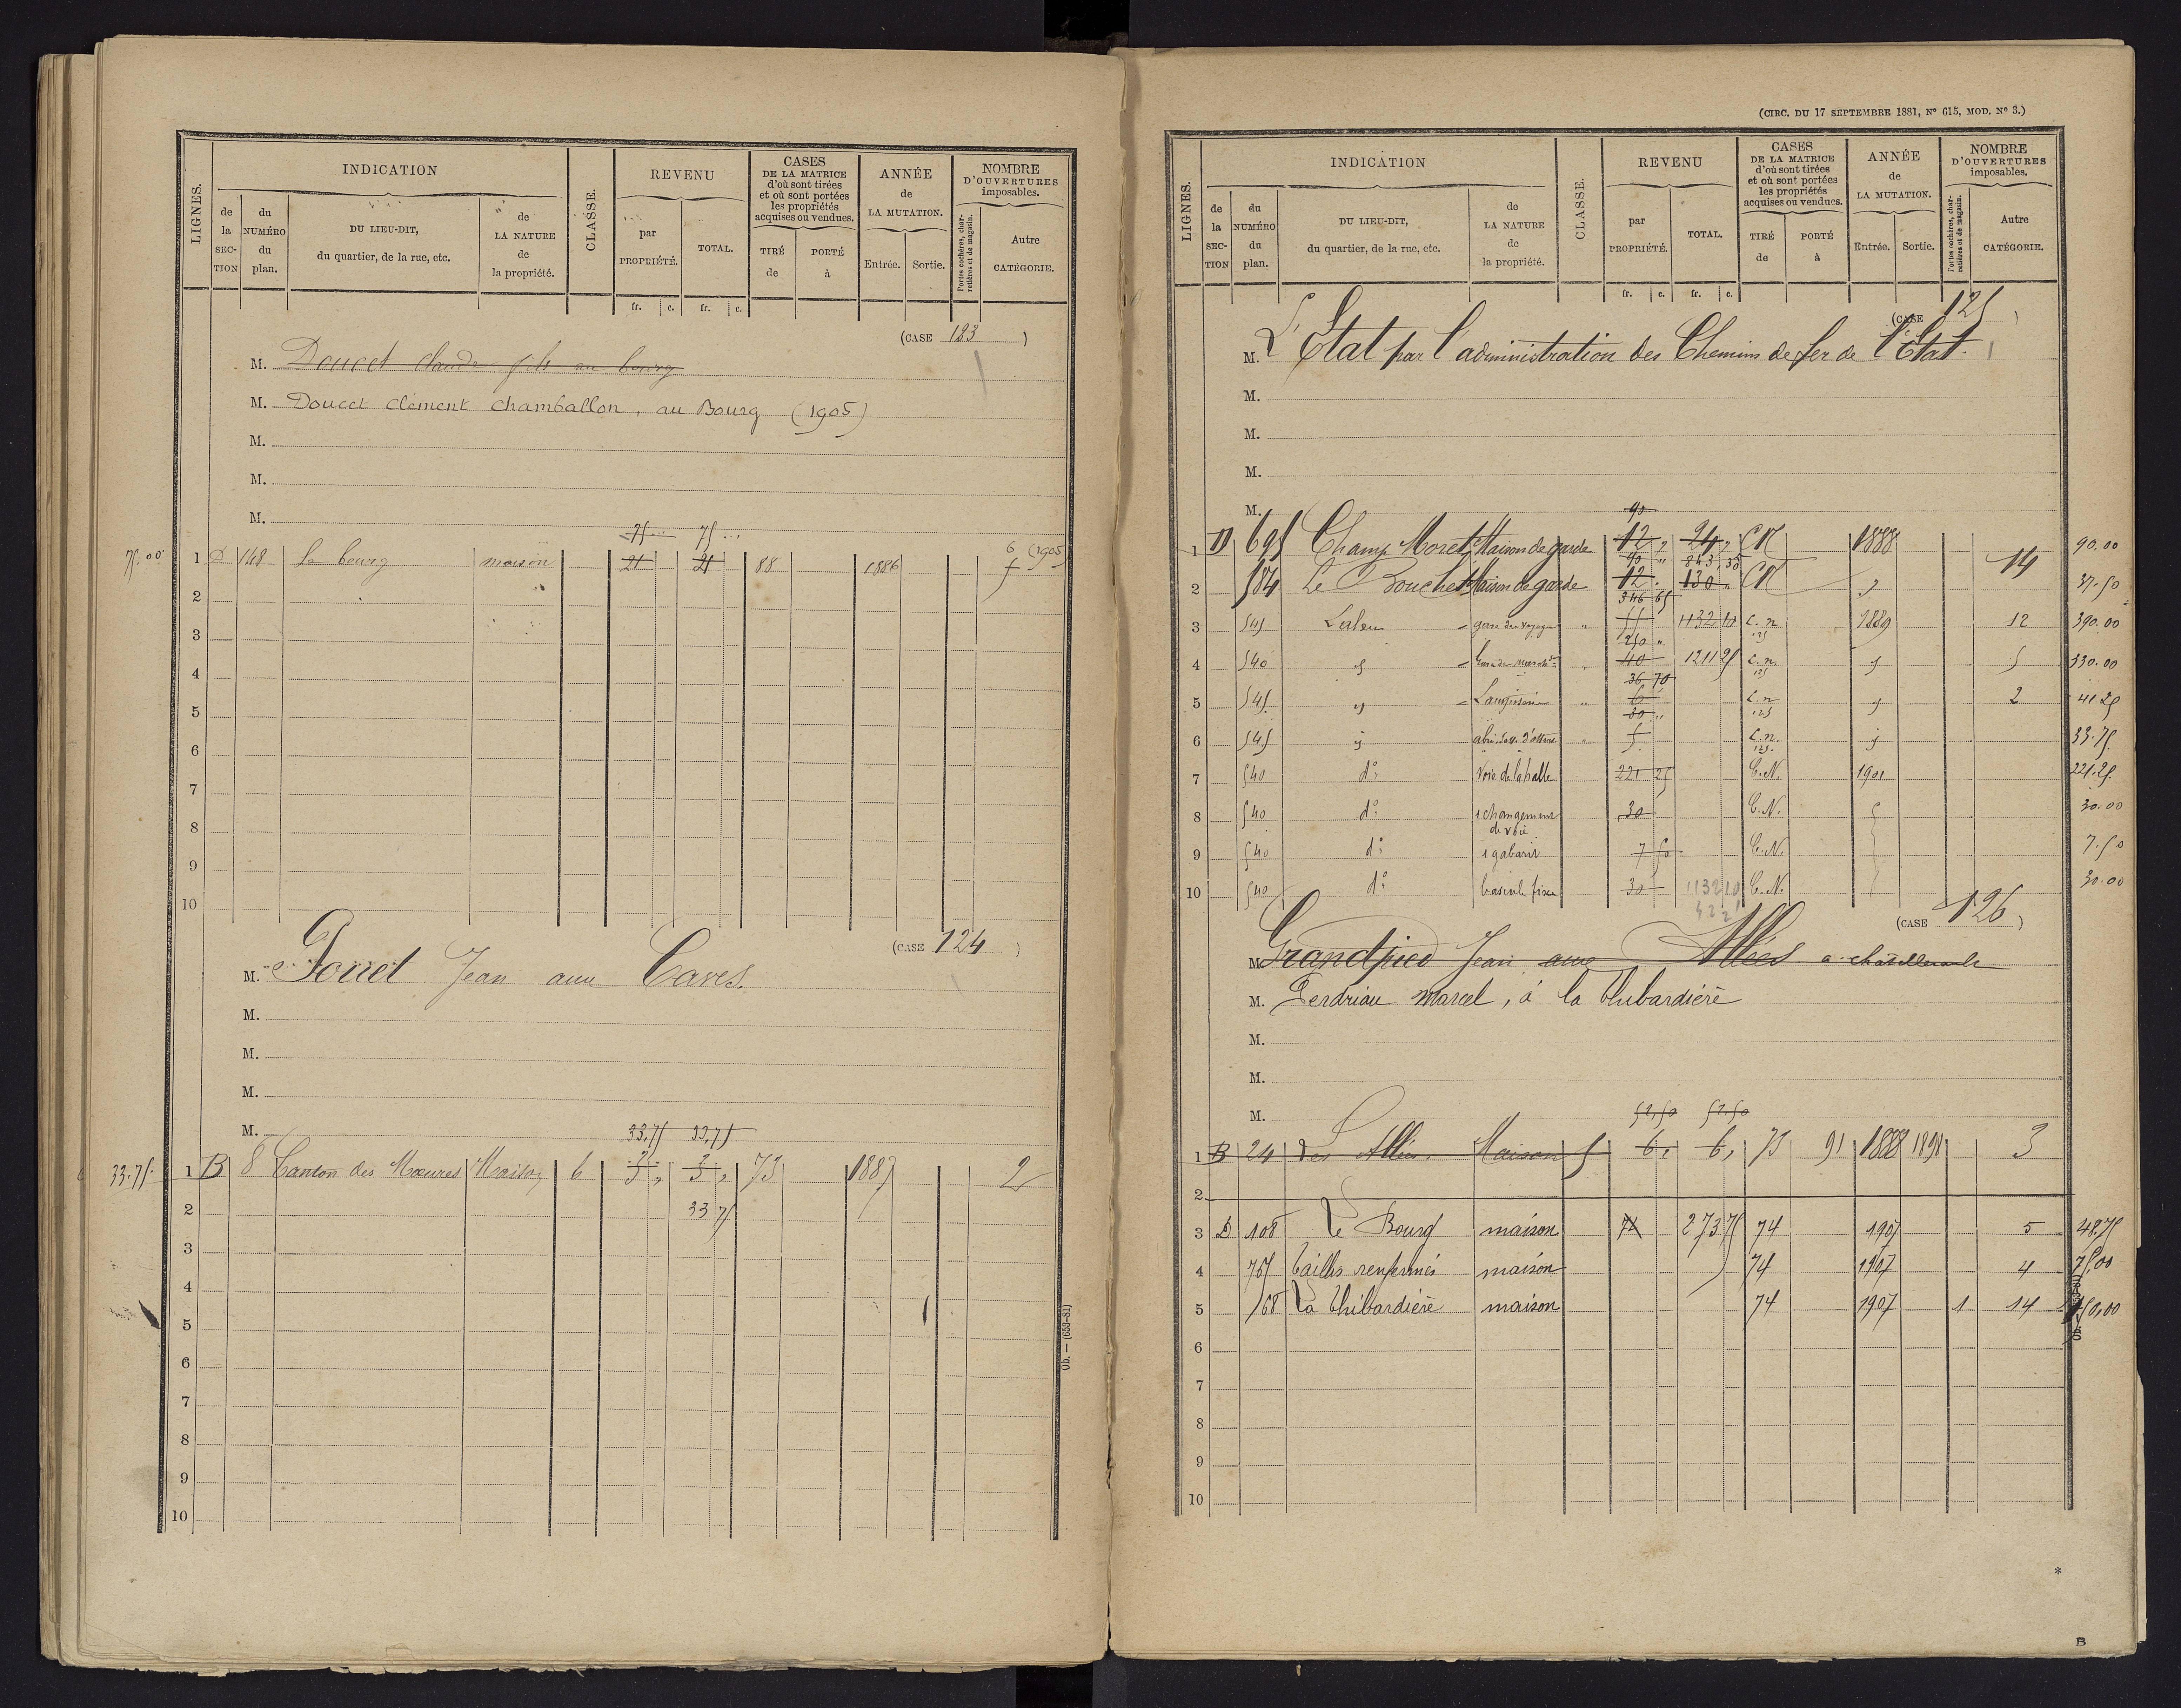 LIGNES.
INDICATION
de la SECTION
du NUMÉRO du plan.
DU LIEU-DIT, du quartier, de la rue, etc.
de LA NATURE de la propriété.
CLASSE.
REVENU
par PROPRIÉTÉ.
TOTAL.
CASES DE LA MATRICE d'où sont tirées et où sont portées les propriétés acquises ou vendues.
TIRÉ de
PORTÉ à
ANNÉE de LA MUTATION.
Entrée.
Sortie.
NOMBRE D'OUVERTURES imposables.
Portes cochères, charretières et de magasin.
Autre CATÉGORIE.
fr. c. fr. c.
(CASE 123 )
M. Doucet Claude fils au bourg
M. Doucet Clément Chamballon, au Bourg (1905)
M.
M.
M.
75... 75...
75.00 1 D 148 Le bourg maison 21 21 88 1886 6 (1905)
2
3
4
5
6
7
8
9
10
(CASE 124 )
M. Jean aux Caves.
M.
M.
M.
M.
33,75 33,75
33.75. 1 B 8 Canton des Mœures Maison 6 3 „ 3 „ 73 1887 2
2 33 75
3
4
5
6
7
8
9
10
Ob. — (653-81)
(CIRC. DU 17 SEPTEMBRE 1881, N° 615, MOD. N° 3.)
LIGNES.
INDICATION
de la SECTION
du NUMÉRO du plan.
DU LIEU-DIT, du quartier, de la rue, etc.
de LA NATURE de la propriété.
CLASSE.
REVENU
par PROPRIÉTÉ.
TOTAL.
CASES DE LA MATRICE d'où sont tirées et où sont portées les propriétés acquises ou vendues.
TIRÉ de
PORTÉ à
ANNÉE de LA MUTATION.
Entrée.
Sortie.
NOMBRE D'OUVERTURES imposables.
Portes cochères, charretières et de magasin.
Autre CATÉGORIE.
fr. c. fr. c.
(CASE 125 )
M. L'Etat par l'administration des Chemins de fer de l'Etat.
M.
M.
M.
M.
90
1 D 695 Champ Moret Maison de garde 12 „ 24 „ CN 1888 90.00
90 „ 843,35 14
2 584 Le Bouchet Maison de garde 12 . 130 „ CN „ 37.50
346 65
3 545 Laleu gare des voyageurs „ 55 1132 10 C.n. 1889 12 390.00
250 „ 125
4 540 „ „ 40 1211 25 C.n. „ 5 330.00
36 70 125
5 545 „ Lampisterie „ 6 C.n. „ 2 41 25
30 „ 125
6 545 „ „ 5 C.n. „ 33.75
125
7 540 d° Voie de la halle 221 25 C.N. 1901 221.25
8 540 d° 1 changement de voie 30 C.N. 30.00
9 540 d° 1 gabarit 7 50 C.N. 7.50
10 540 d° bascule fixe 30 1132 20 C.N. 30.00
(CASE 126 )
M. Grandpied Jean aux Allées à Châtellerault
M. Perdriau Marcel, à la Thibardière
M.
M.
M.
52,50 52,50
1 B 24 Les Allées Maison 5 6 „ 6 „ 73 91 1888 1891 3
2
3 D 108 Le Bourg maison 74 273 75 74 1907 5 48.75
4 757 Taillis renfermés maison 74 1907 4 75.00
5 168 La Thibardière maison 74 1907 1 14 150,00
6
7
8
9
10
*
B